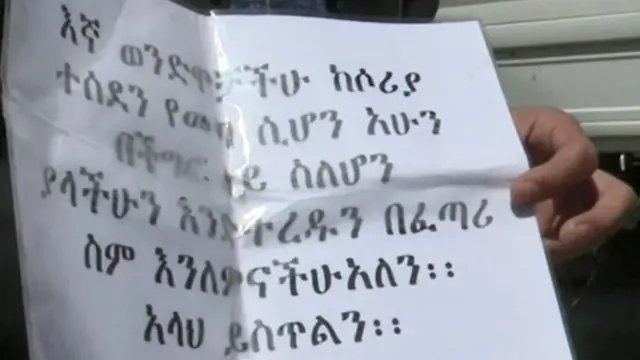 እኛ ወንድሞቻችሁ ከሶሪያ
ተሰደን ሲሆን አሁን
በችግር ላይ ስለሆን
ያላችሁን እንድትረዱን በፈጣሪ
ስም እንለምናችሁአለን፡፡
አላህ ይስጥልን፡፡